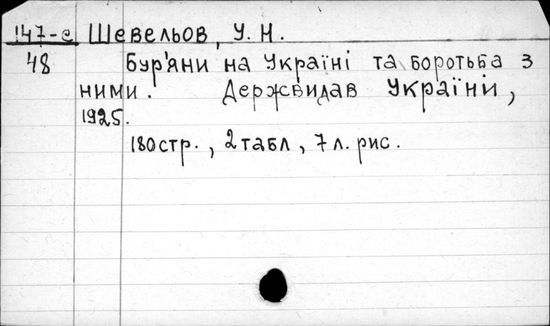 147-е Шевельов, У. Н.
48 Бур'яни на Україні та боротьба з
ними. Держвидав України,
1925.
180стр., 2табл, 7л. рис.